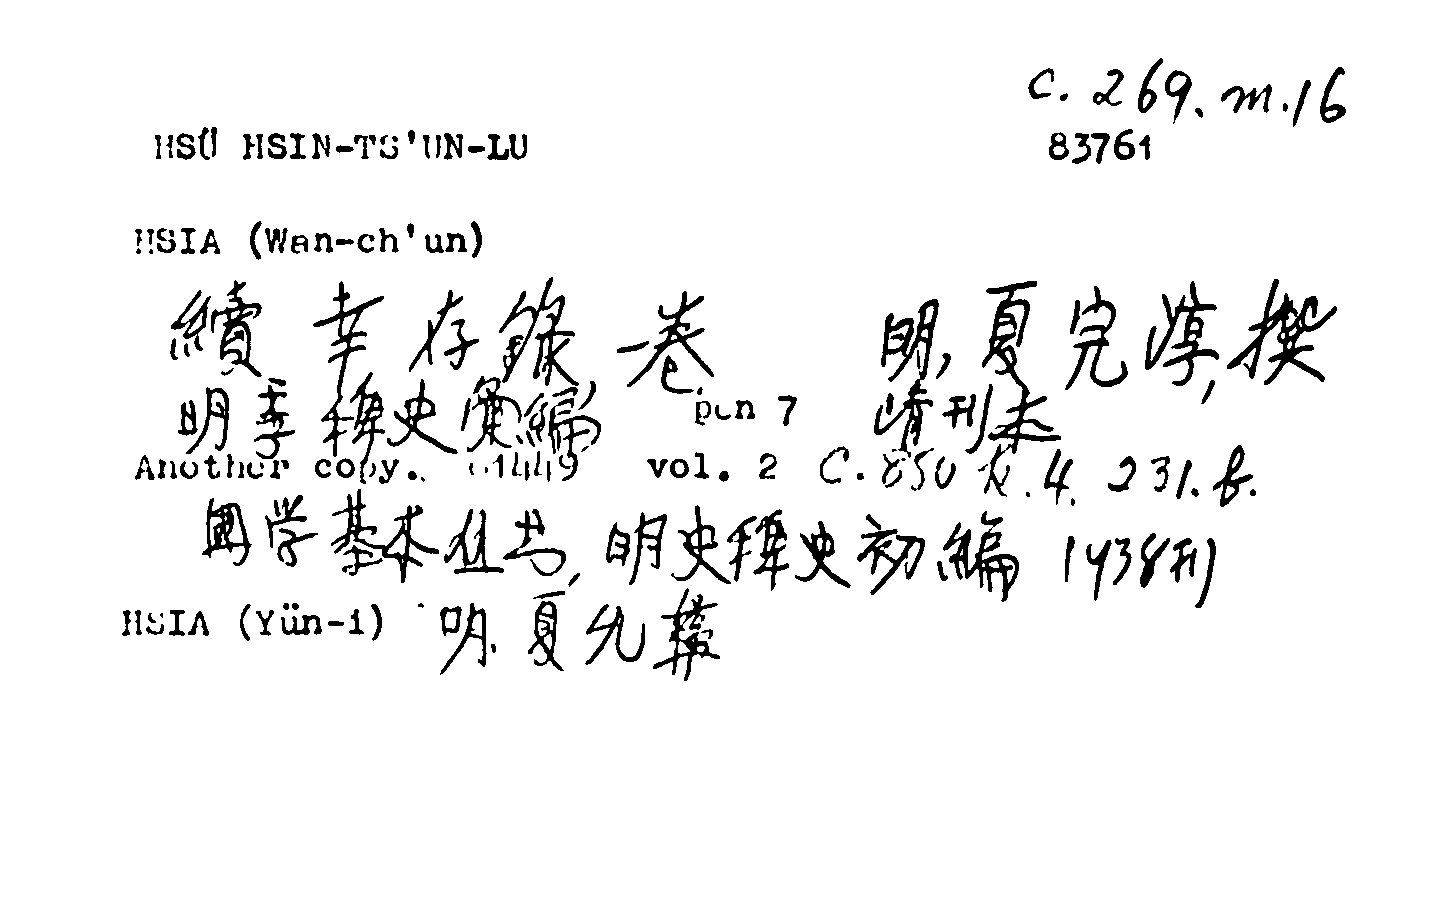 C. 269. m. 16
HSÜ HSIN-TS'UN-LU 83761
HSIA (Wan-ch'un)
續幸存錄一卷 明, 夏完淳, 撰
明季稗史彙編 pen 7 刊本
Another copy. vol. 2 C. 850 4. 231. b.
國学基本丛书, 明史稗史初編 1938刊
HSIA (Yün-i) 明. 夏允彝